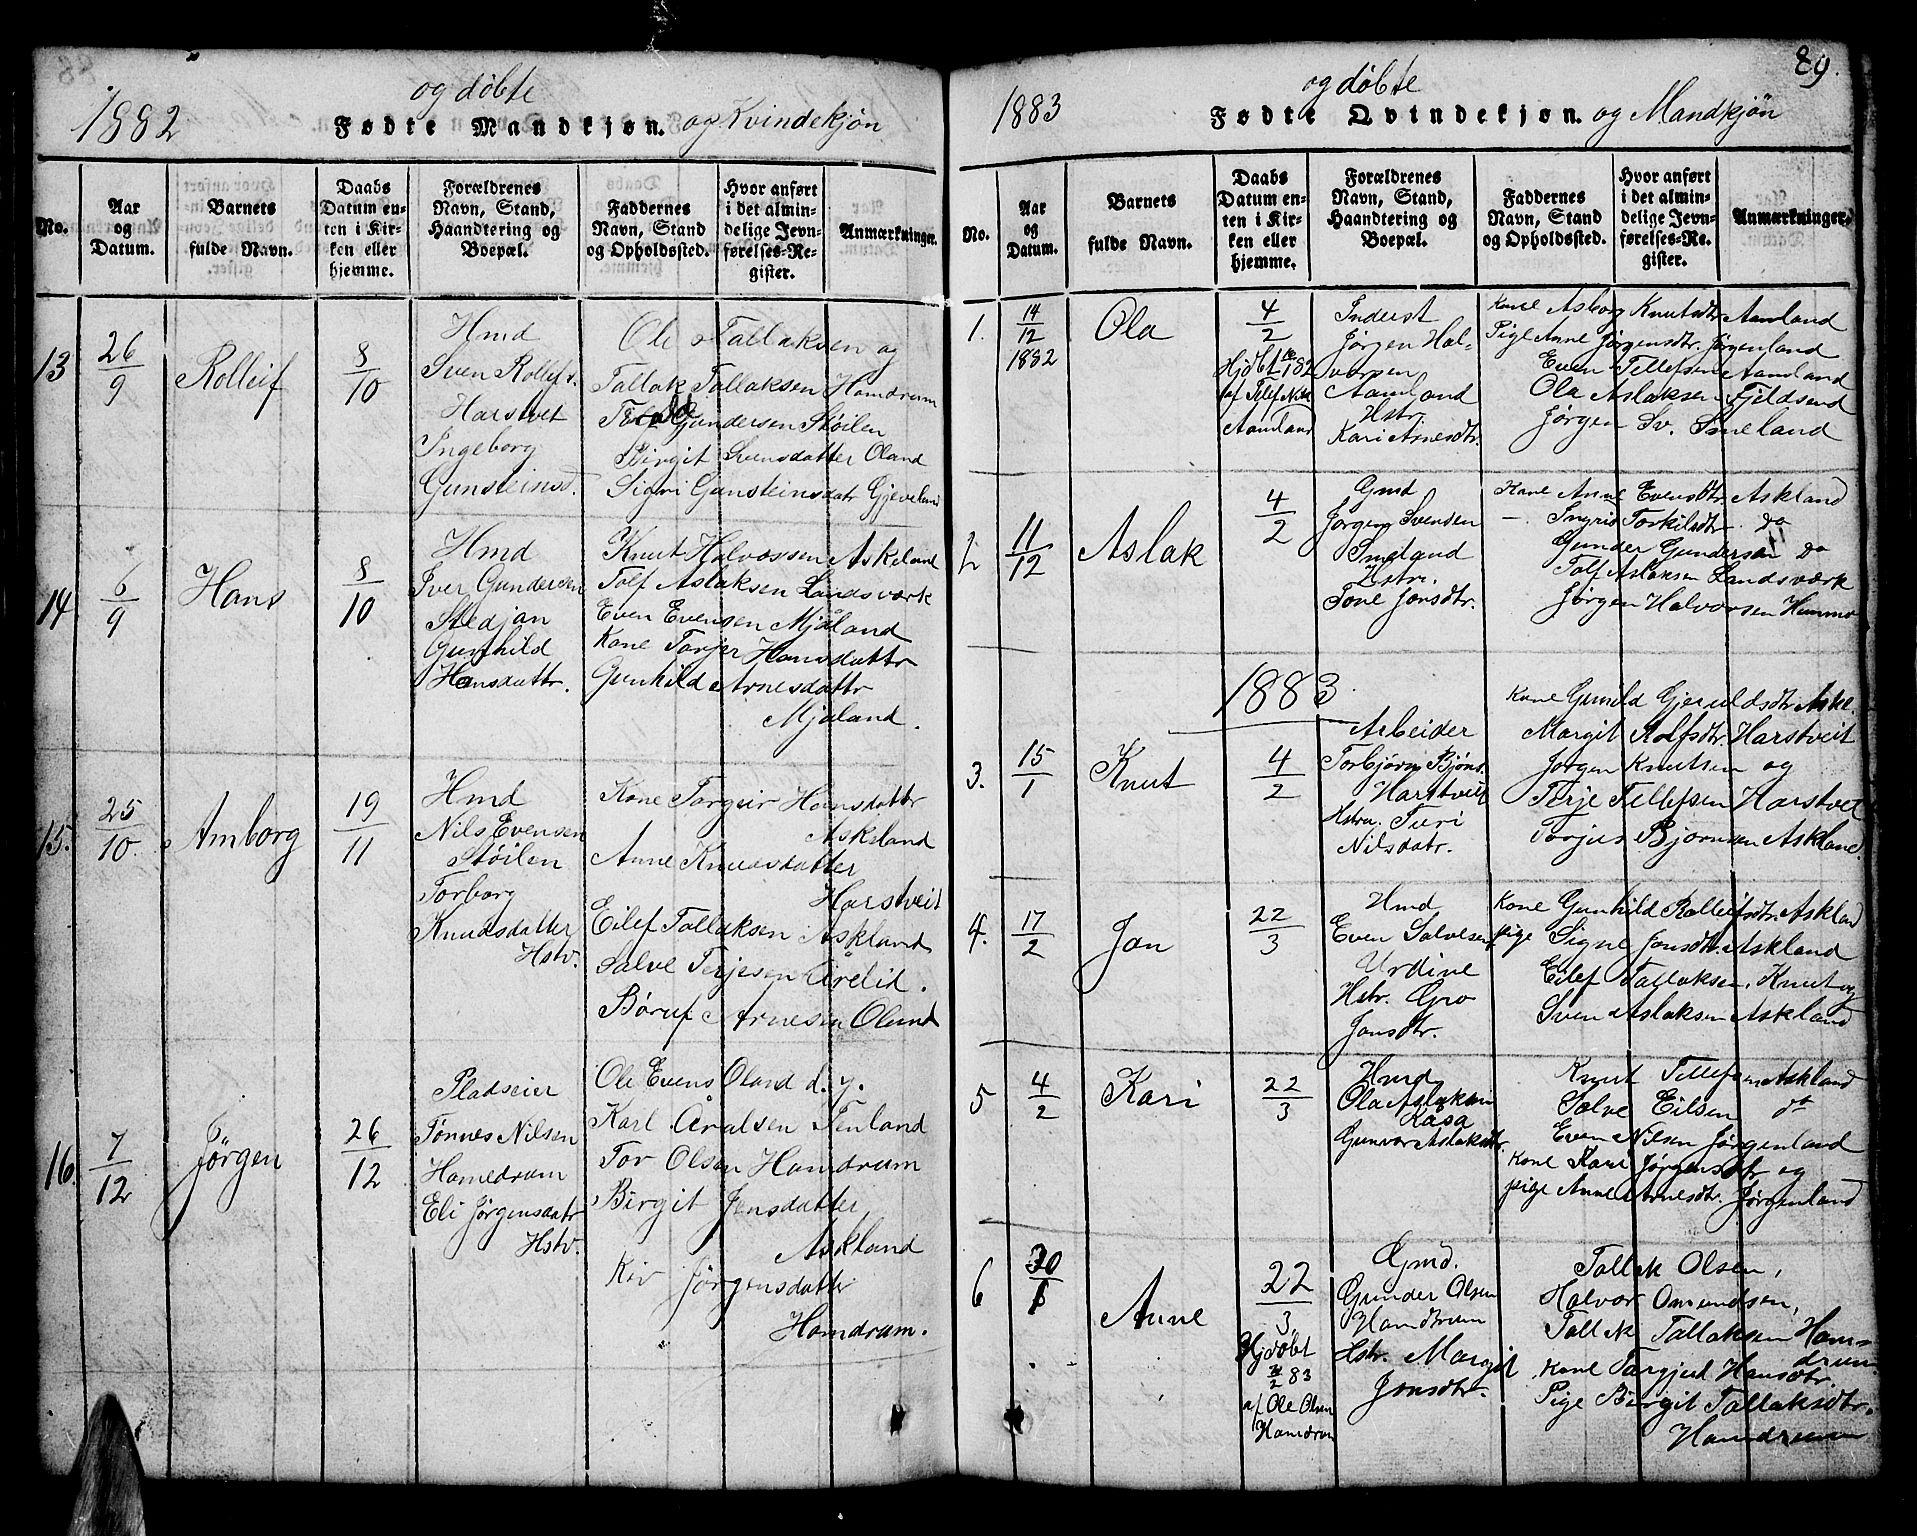 1882
og døbte
Fødte Mandkjøn. og Kvindekjøn
No.
Aar og Datum.
Barnets fulde Navn.
Daabs Datum enten i Kirken eller hjemme.
Forældrenes Navn, Stand, Haandtering og Boepæl.
Faddernes Navn, Stand og Opholdssted.
Hvor anført i det almindelige Jevnførelses-Register.
Anmærkninger.
13
26/9
Rolleif
8/10
Hmd
Sven Rolleifs.
Harstvet
Ingeborg
Gunsteinsd.
Ole Tallaksen og
Tallak Tallaksen Hamdrum
Gundersen Støilen
Birgit Svensdatter Oland
Sigri Gunsteinsdatr Gjeveland
14
6/9
Hans
8/10
Hmd
Iver Gundersen
Stedjan
Gunhild
Hansdattr.
Knut Halvorssen Askeland
Tolf Aslaksen Landsværk
Even Evensen Mjaland
Kone Torjer Hansdattr
Gunhild Arnesdattr
Mjaland.
15.
25/10.
Amborg
19/11
Hmd
Nils Evensen
Støilen
Torborg
Knudsdatter
Hstv.
Kone Torgur Hansdattr
Askeland
Anne Knudsdatter
Harstveit
Eilef Tallaksen Askland
Salve Terjesen Urelid.
Børuf Arnesen Oland
16.
7/12
Jørgen
26/12
Pladseier
Tønnes Nilsen
Hamedram
Eli Jørgensdatr
Hstv.
Ole Evens Oland d. y.
Karl Aralsen Tenland
Tor Olsen Hamdrum
Birgit Jensdatter
Askland
Kiv Jørgensdatter
Hamdram.
89.
1883
og døbte
Fødte Qvindekjøn. og Mandkjøn
No.
Aar og Datum.
Barnets fulde Navn.
Daabs Datum enten i Kirken eller hjemme.
Forældrenes Navn, Stand, Haandtering og Boepæl.
Faddernes Navn, Stand og Opholdssted.
Hvor anført i det almindelige Jevnførelses-Register.
Anmærkninger.
1.
14/12 1882
Ola
4/2
af Tellef Nils
Aamland
Inderst
Jørgen Hal-
vorsen
Aamland
Hstr.
Kari Arnesdtr.
Kone Asborg Knutsdtr Aamland
Pige Anne Jørgensdtr. Jørgenland
Even Tellefsen Aamland
Ola Aslaksen Fjeldsend
Jørgen Sv. Smeland
2
11/12
Aslak
4/2
Gmd
Jørgen Svendsen
Smeland
Hstr.
Tone Jonsdtr.
Kone Anne Evensdtr. Askland
— Ingrid Torkilsdtr. do
Gunder Gundersen do
Tolf Aslaksen Landsværk
Jørgen Halvorsen
1883
3.
15/1
Knut
4/2
Arbeider
Torbjørn Bjøns.
Harstveit
Hstru. Turi
Nilsdatr.
Kone Gunild Gjeruldsdtr Aske.
Margit Rolfsdtr. Harstveit
Jørgen Knutsen og
Terje Tellefsen Harstvet
Torjus Bjørnsen Askland.
4.
17/2
Jon
22/3
Hmd
Even Salvesen
Urdine
Hstr. Gro
Jonsdtr.
Kone Gunhild Rolleifsdtr. Askland
pige Signe Jonsdtr. Askland
Eilef Tallaksen, Knut og
Sven Aslaksen Askland
5
4/2
Kari
22/3
Hmd
Ola Aslaksen
Kasa
Gunvor Aslaksdtr.
Knut Tellefsen Askland
Salve Eilsen do
Even Nilsen Jørgenland
Kone Kari Jørgensdtr og
pige Anne Arnesdtr. Jørgenland
6
Anne
22/3
Hjdøbt
83
af Ole Olsen
Hamdrum
Gmd.
Gunder Olsen
Hamdrum
Hstr. Margit
Jonsdtr.
Tallak Olsen,
Halvor Omundsen,
Tallak Tallaksen Ham-
drum
Kone Targjerd Hansdtr.
Pige Birgit Tallaksdtr.
Hamdrum